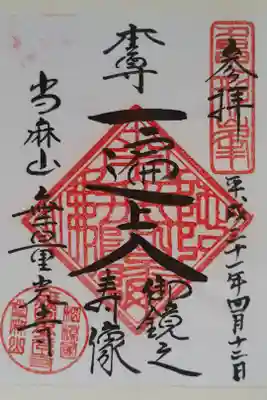 参拝
平成二十一年四月十二日
本尊
一遍上人
御鏡之
寿像
当麻山
無量光寺